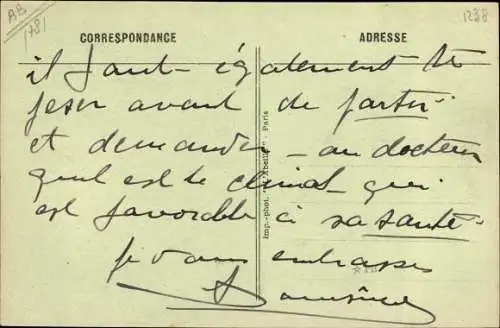 AB
1781
1238
CORRESPONDANCE
ADRESSE
il faut également te
peser avant de partir
et demander au docteur
quel est le climat qui
est favorable à sa santé
je vous embrasse
Imp.-phot. "L'Abeille" - Paris